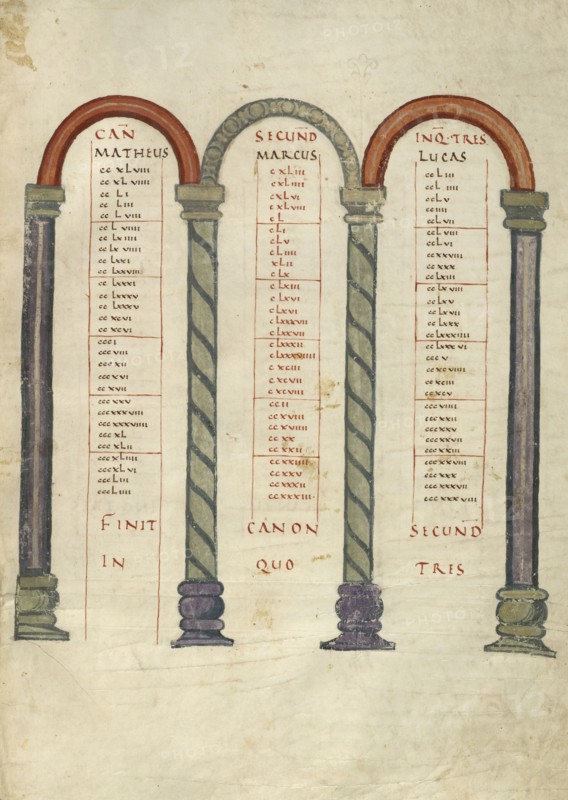 CAN̄
MATHEUS
cc xLviii
cc xL viiii
cc L i
cc L iii
cc L viii
cc L viiii
cc Lx iiii
cc Lx viiii
cc Lxxi
cc Lxxviii
cc Lxxxi
cc Lxxxv
cc Lxxxv
cc xcvi
cc xcvi
ccc i
ccc viii
ccc xii
ccc xvi
ccc xvii
ccc xxv
ccc xxxviii
ccc xxxviiii
ccc xL
ccc xLii
ccc xLiiii
ccc xLvi
cccLiii
cccLiiii
SECUND̄
MARCUS
c xLiii
c xLiiii
c xLvi
c xLviii
c L
c Li
c Lv
c Liiii
xLii
c Lx
c Lxiii
c Lxvi
c Lxvi
c Lxxvii
c Lxxviii
c Lxxxii
c Lxxxviiii
c xciii
c xcvii
c xcviii
cc ii
cc xviii
cc xviiii
cc xx
cc xxii
cc xxiiii
cc xxv
cc xxxii
cc xxxiii
INQ·TRES
LUCAS
cc L iii
cc L iiii
cc L v
cc iiii
cc L vii
cc L viii
cc L vi
cc xxviii
cc xxx
cc L xiii
cc L xviii
cc L xv
cc L xvii
cc L xxx
cc L xxxiiii
cc L xxx vi
ccc v
cc xc viiii
cc xciii
cc xcv
ccc viiii
ccc xxii
ccc xxv
ccc xxvii
ccc xxiii
ccc xxxviii
ccc xxx
ccc xxx viii
FINIT CANON SECUND̄
IN QUO TRES